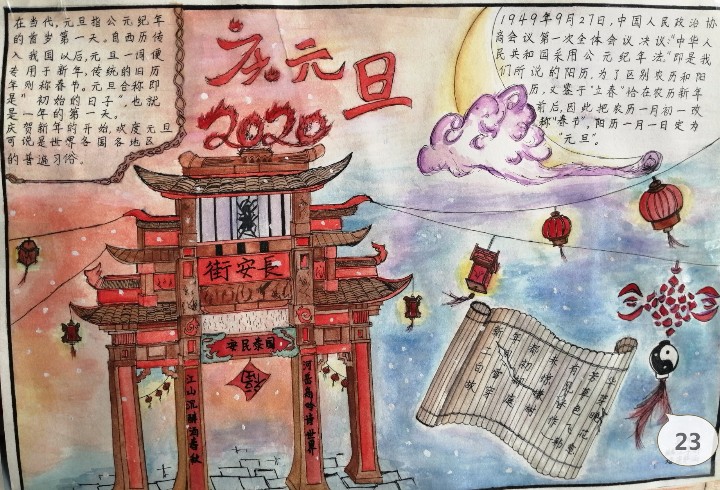 庆元旦
2020
在当代,元旦指公元纪年
的首岁第一天。自西历传
入我国以后,元旦一词便
专用于新年,传统的旧历
年则称春节。元旦合称即
是"初始的日子",也就
是一年的第一天。
庆贺新年的开始,欢度元旦
可说是世界各国各地区
的普遍习俗。
1949年9月27日,中国人民政治协
商会议第一次全体会议决议:"中华人
民共和国采用公元纪年法。"即是我
们所说的阳历,为了区别农历和阳
历,又鉴于"立春"恰在农历新年
前后,因此把农历一月初一改
称"春节",阳历一月一日定为
"元旦"。
長安街
安民泰国
福
河
世界
江山
新
年
都
未
有
芳
华
23